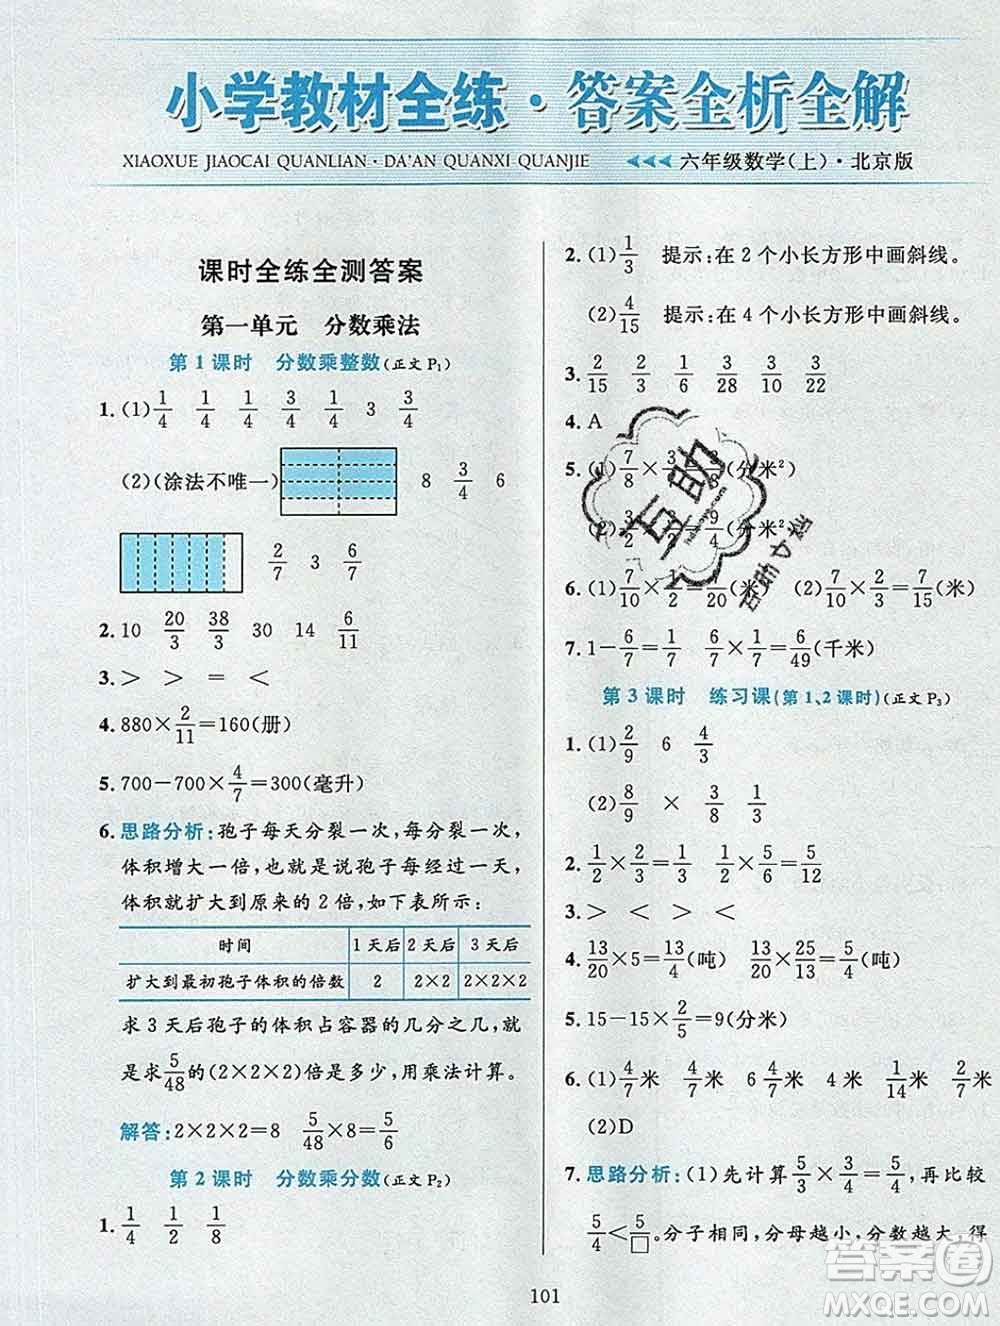 小学教材全练·答案全析全解
XIAOXUE JIAOCAI QUANLIAN · DA'AN QUANXI QUANJIE 六年级数学(上)·北京版
课时全练全测答案
第一单元 分数乘法
第1课时 分数乘整数(正文P₁)
1.(1) 1/4 1/4 1/4 3/4 1/4 3 3/4
(2)(涂法不唯一) 8 3/4 6
2/7 3 6/7
2. 10 20/3 38/3 30 14 6/11
3. > > = <
4. 880×2/11=160(册)
5. 700-700×4/7=300(毫升)
6. 思路分析:孢子每天分裂一次,每分裂一次,
体积增大一倍,也就是说孢子每经过一天,
体积就扩大到原来的2倍,如下表所示:
时间 1天后 2天后 3天后
扩大到最初孢子体积的倍数 2 2×2 2×2×2
求3天后孢子的体积占容器的几分之几,就
是求5/48的(2×2×2)倍是多少,用乘法计算。
解答:2×2×2=8 5/48×8=5/6
第2课时 分数乘分数(正文P₂)
1. 1/4 1/2 1/8
2.(1) 1/3 提示:在2个小长方形中画斜线。
(2) 4/15 提示:在4个小长方形中画斜线。
3. 2/15 2/3 1/6 3/28 3/10 3/22
4. A
5.(1) 7/8× (分米²)
(2) 3/2× =9/4(分米²)
6.(1) 7/10×1/2=7/20(米) (2) 7/10×2/3=7/15(米)
7. 1-6/7=1/7 6/7×1/7=6/49(千米)
第3课时 练习课(第1、2课时)(正文P₃)
1.(1) 2/9 6 4/3
(2) 8/9 × 3/8 1/3
2. 1/2×3/4=3/8 1/2×5/6=5/12
3. > < > <
4. 13/20×5=13/4(吨) 13/20×25/13=5/4(吨)
5. 15-15×2/5=9(分米)
6.(1) 4/7米 4/7米 6 4/7米 4米 24/7米
(2)D
7. 思路分析:(1)先计算5/3×3/4=5/4,再比较
5/4<5/□。分子相同,分母越小,分数越大 得
101
互助
互助文档
答案圈
MXQE.COM